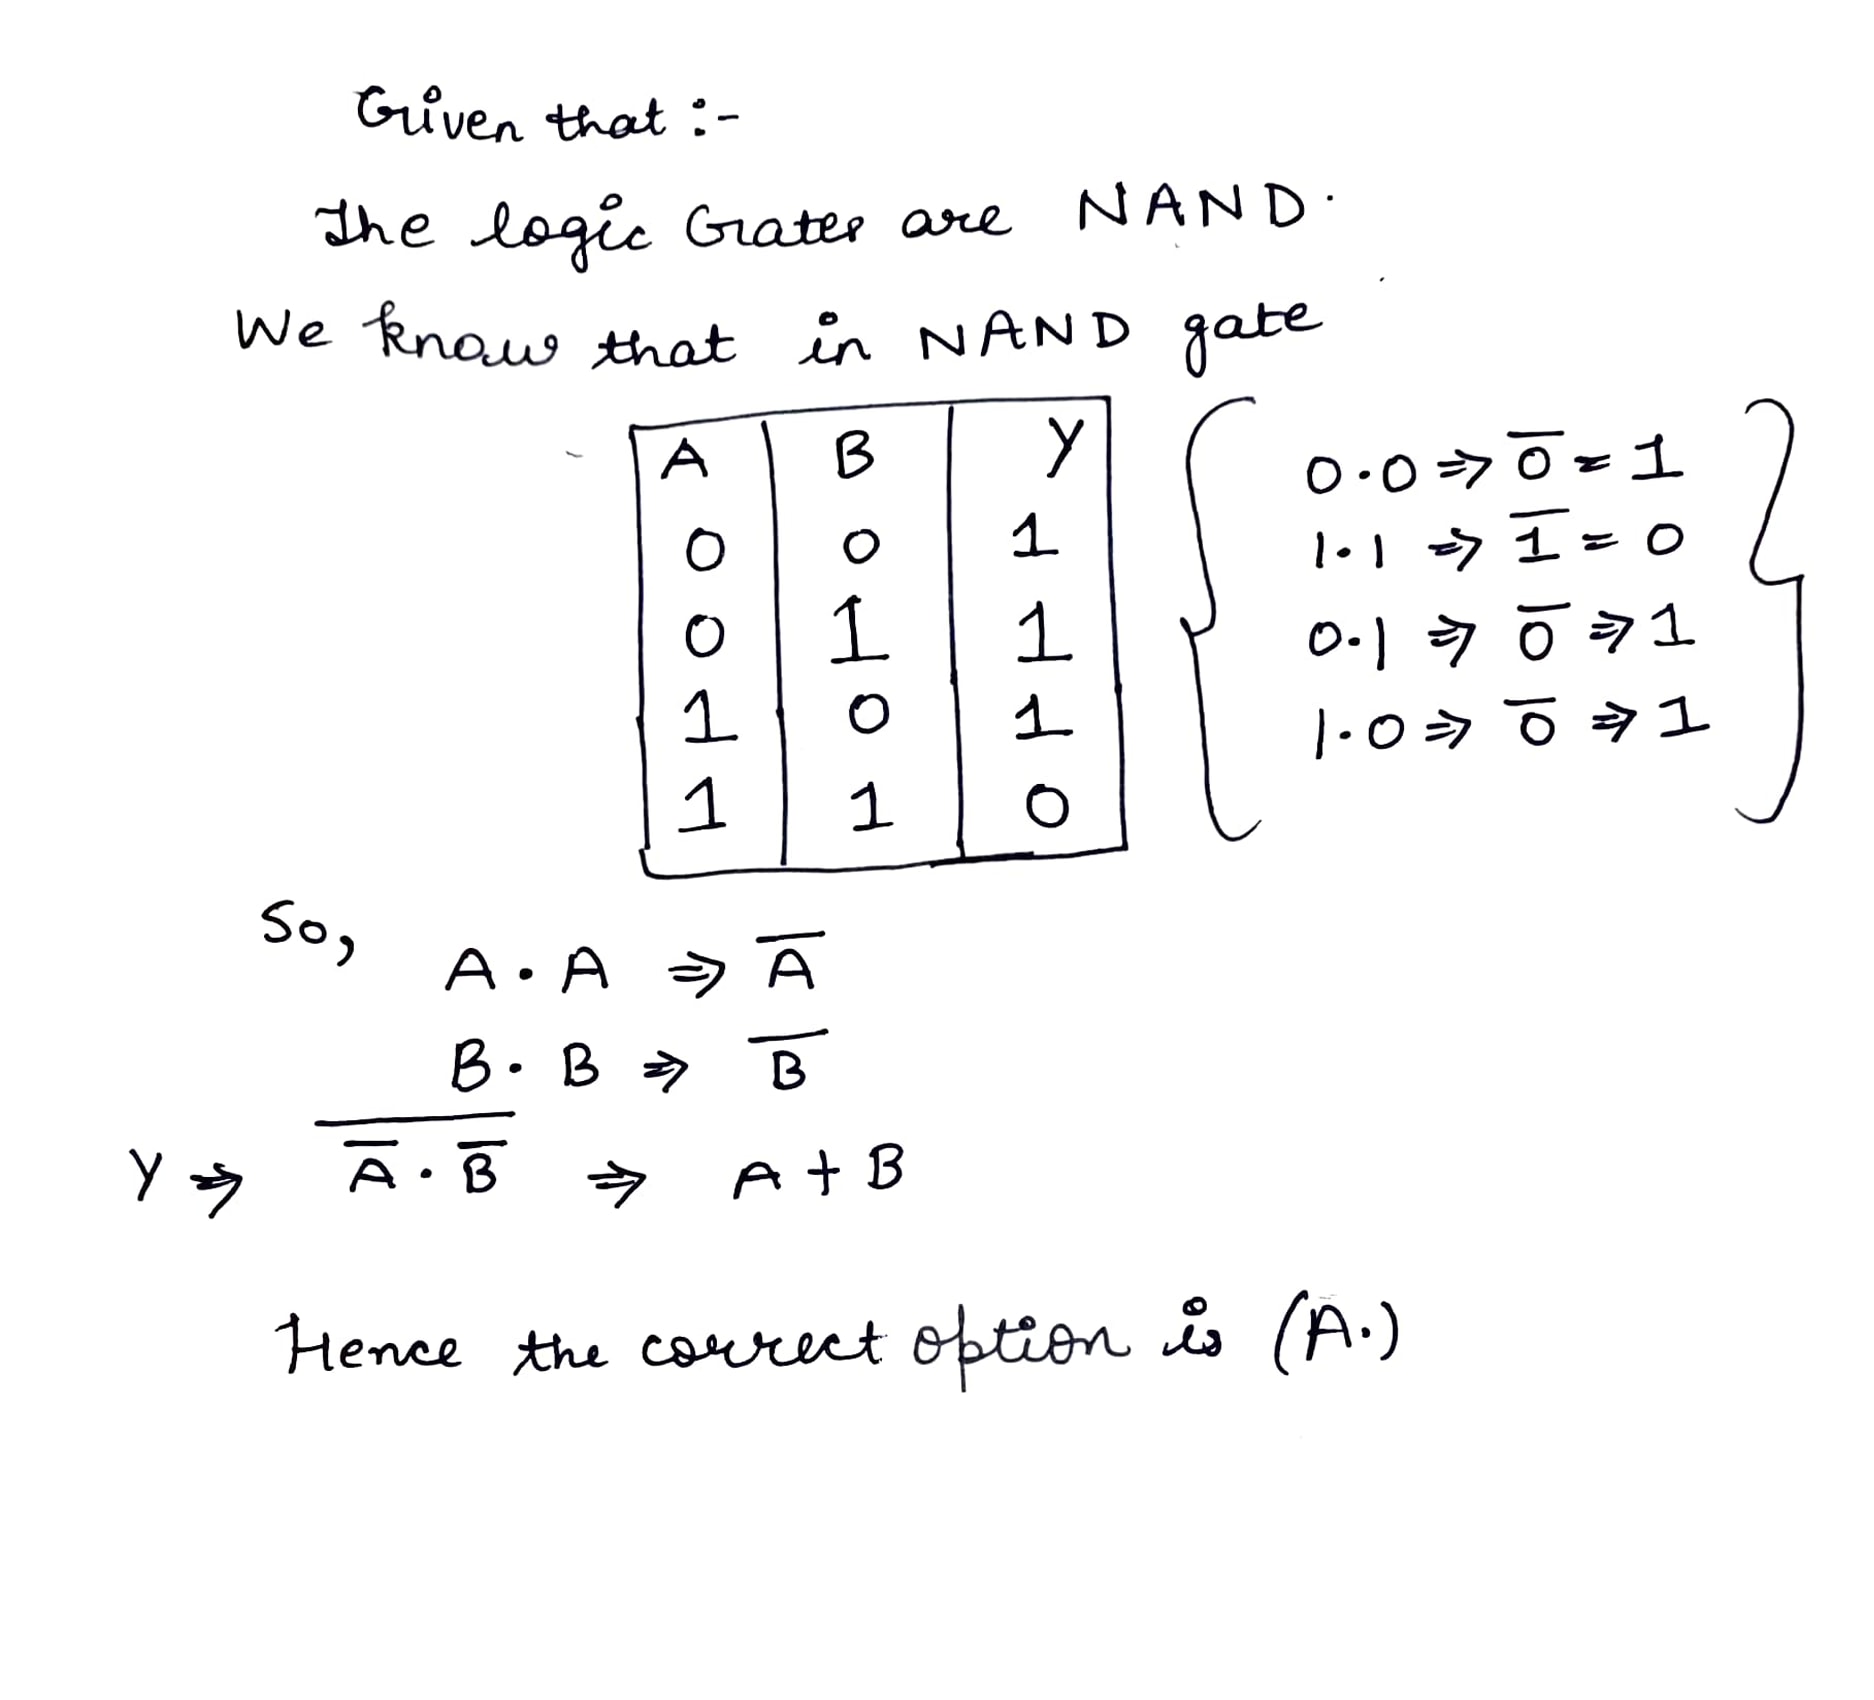 Given that :-
The logic Gates are NAND.
We know that in NAND gate
A B Y
0 0 1
0 1 1
1 0 1
1 1 0
0.0 ⇒ 0̅ = 1
1.1 ⇒ 1̅ = 0
0.1 ⇒ 0̅ ⇒ 1
1.0 ⇒ 0̅ ⇒ 1
So,
A . A ⇒ A̅
B . B ⇒ B̅
Y ⇒ \overline{A̅ . B̅} ⇒ A + B
Hence the correct option is (A.)